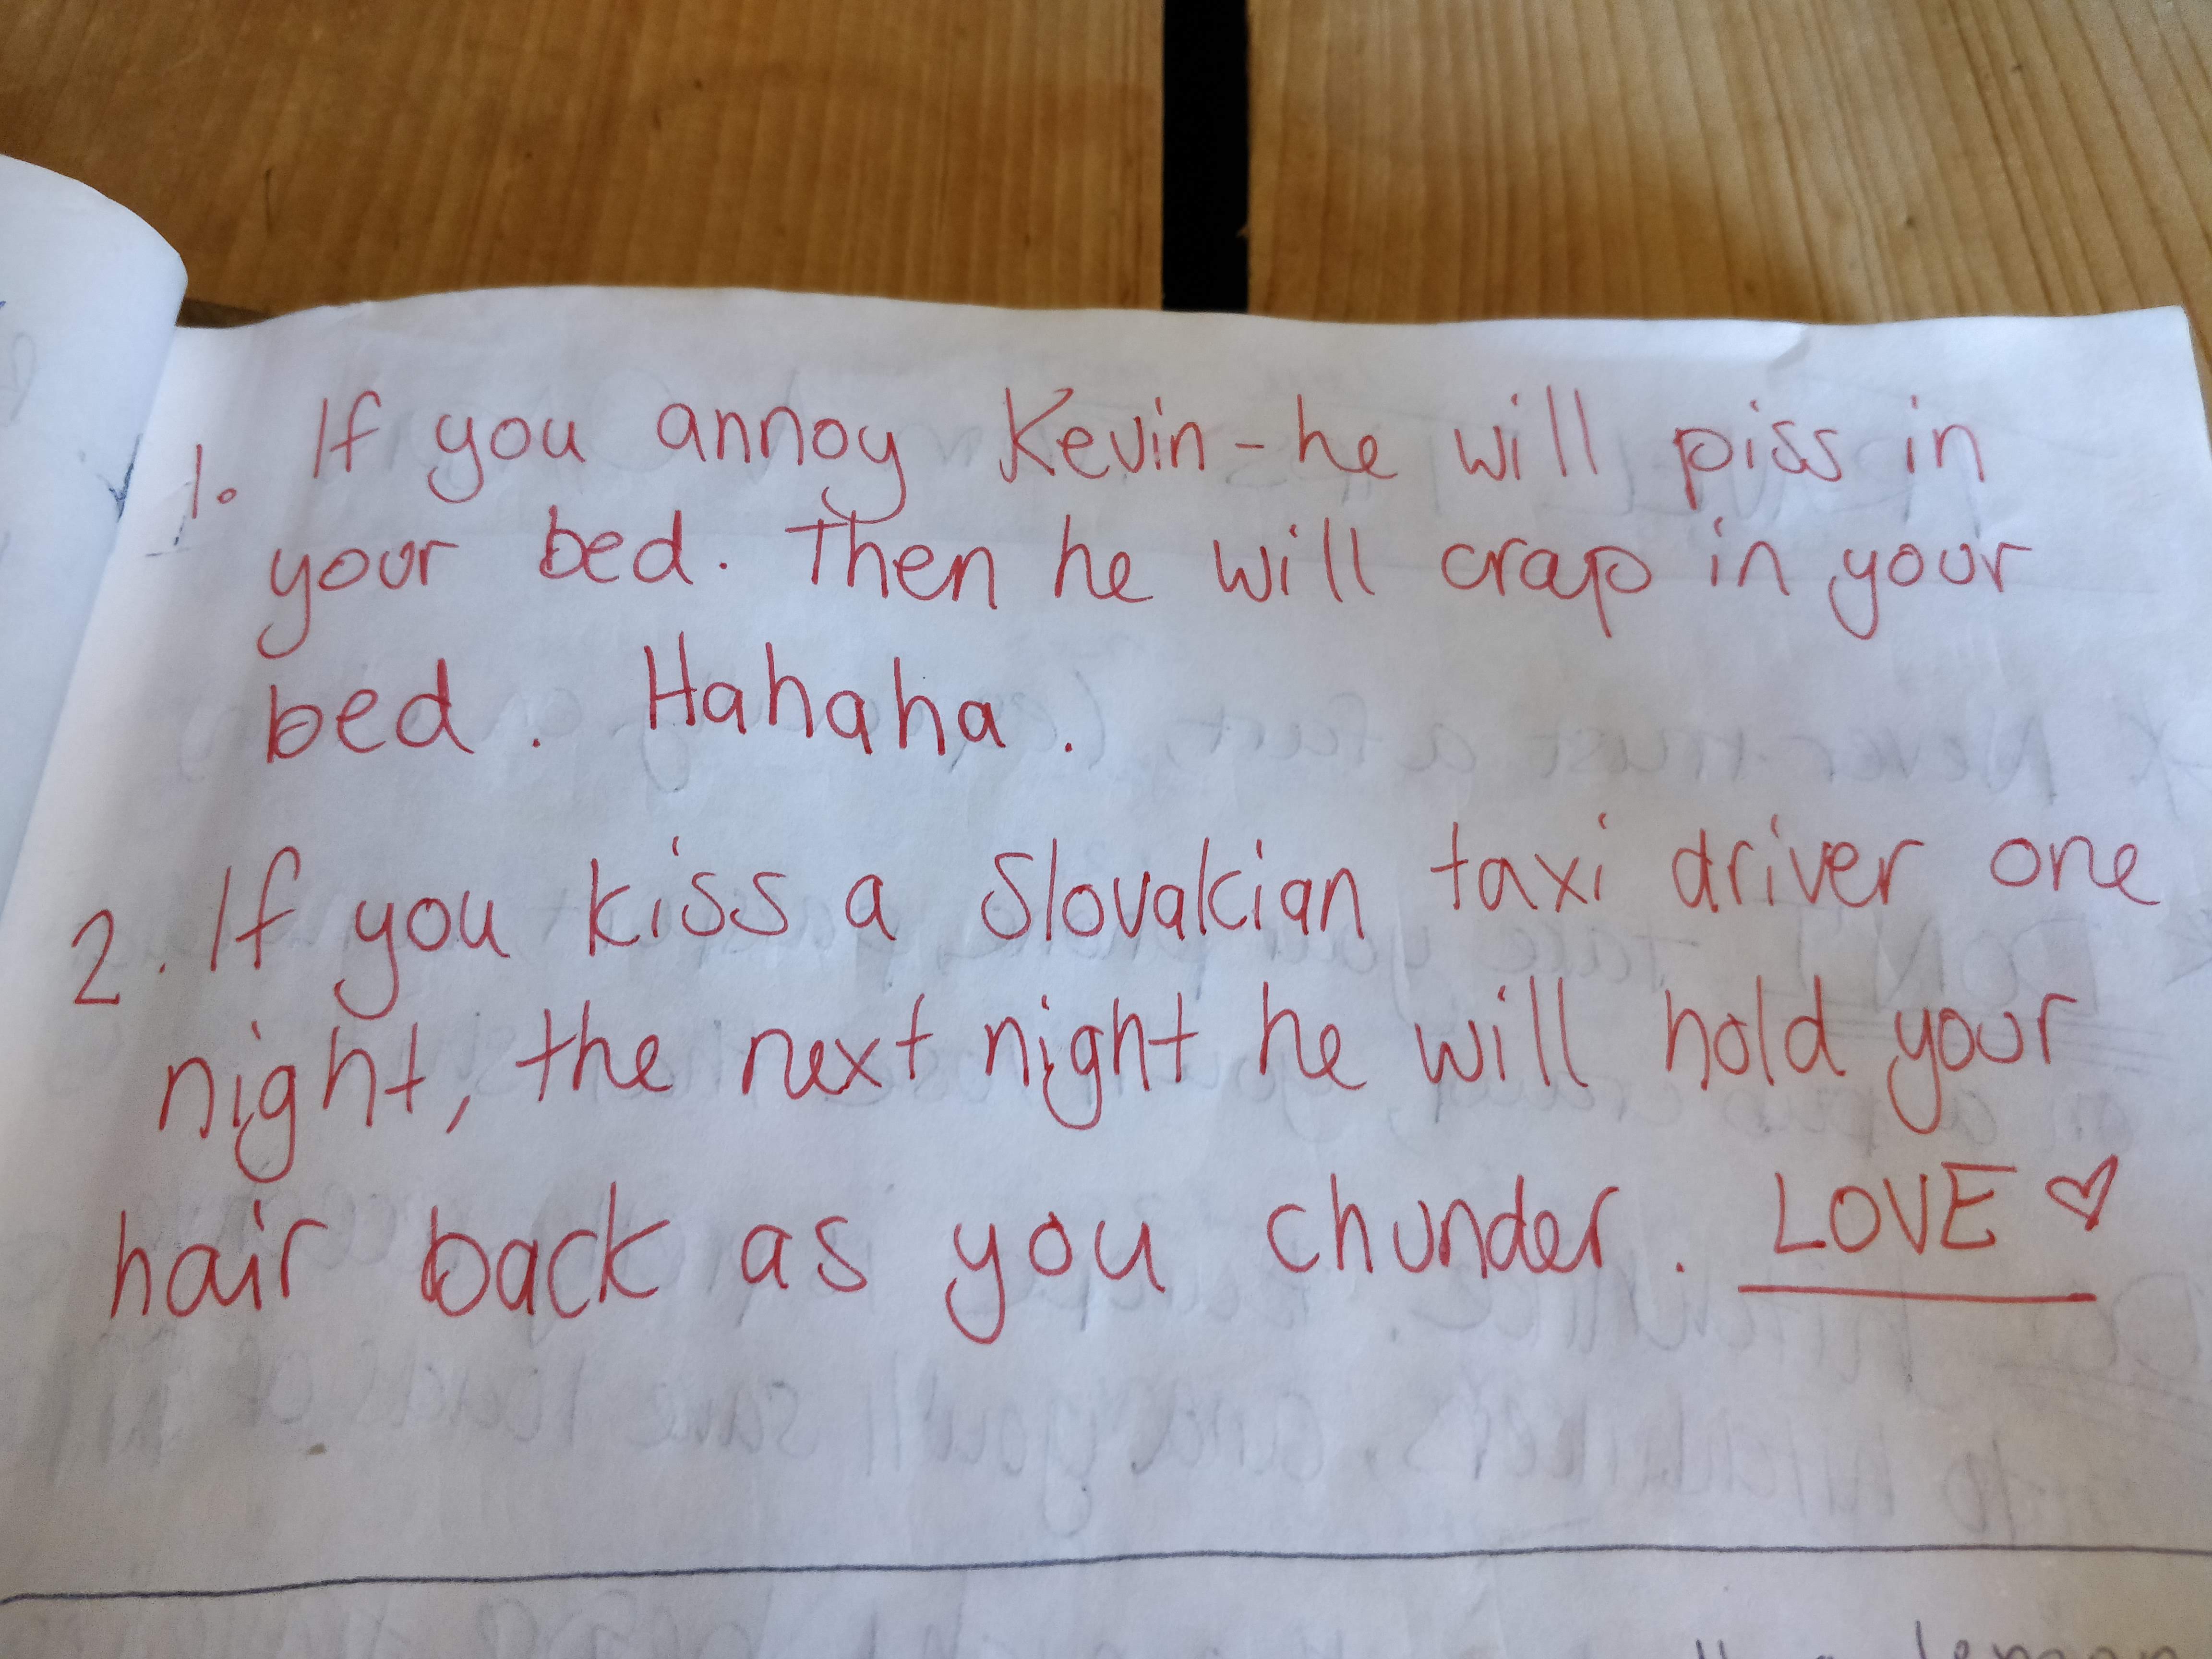 1. If you annoy Kevin - he will piss in
your bed. Then he will crap in your
bed. Hahaha.
2. If you kiss a Slovakian taxi driver one
night, the next night he will hold your
hair back as you chunder. LOVE ♡